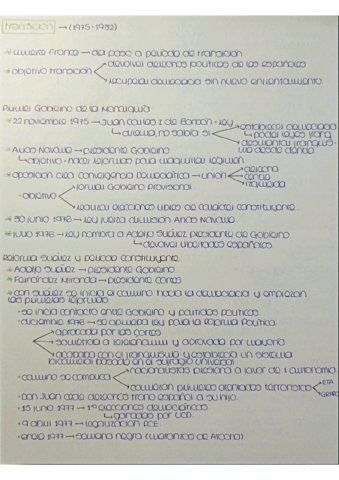 Transición → (1975-1982)
* muerte Franco → da paso a periodo de transición
* objetivo transición
devolver derechos políticos de los españoles
recuperar democracia sin nuevo enfrentamiento.
Primer Gobierno de la Monarquía
* 22 noviembre 1975 → Juan Carlos I de Borbón - rey
dilema, no sabía si
establecer democracia
poder leyes franq.
desmontar franquis-
mo desde dentro
* Arias Navarro → presidente Gobierno
objetivo - hacer reformas para maquillar régimen
* oposición crea Convergencia Democrática → unión
derecha
centro
izquierda
- objetivo
formar Gobierno Provisional
realizar elecciones libres de carácter constituyente.
* 30 junio 1976 → rey fuerza dimisión Arias Navarro.
* julio 1976 → rey nombra a Adolfo Suárez presidente de Gobierno
devolver libertades españoles
Reforma Suárez y periodo constituyente.
* Adolfo Suárez → presidente Gobierno.
* Fernández Miranda → presidente Cortes
* con Suárez se inicia el camino hacia la democracia y empiezan
las primeras reformas
- se inicia contacto entre Gobierno y partidos políticos
- diciembre 1976 → se aprueba ley para la reforma política.
aprobada por las Cortes
sometida a referéndum y aprobada por mayoría
acababa con el franquismo y establecía un sistema
bicameral basado en el sufragio universal
- camino se complica
nacionalistas presiona a favor de 1 autonomía.
sometían primeros atentados terroristas
ETA
GRAPO
- Don Juan cede derechos trono español a su hijo.
- 15 junio 1977 → 1ª elecciones democráticas
ganadas por UCD
- 9 abril 1977 → legalización PCE
- enero 1977 → semana negra (matanza de Atocha)